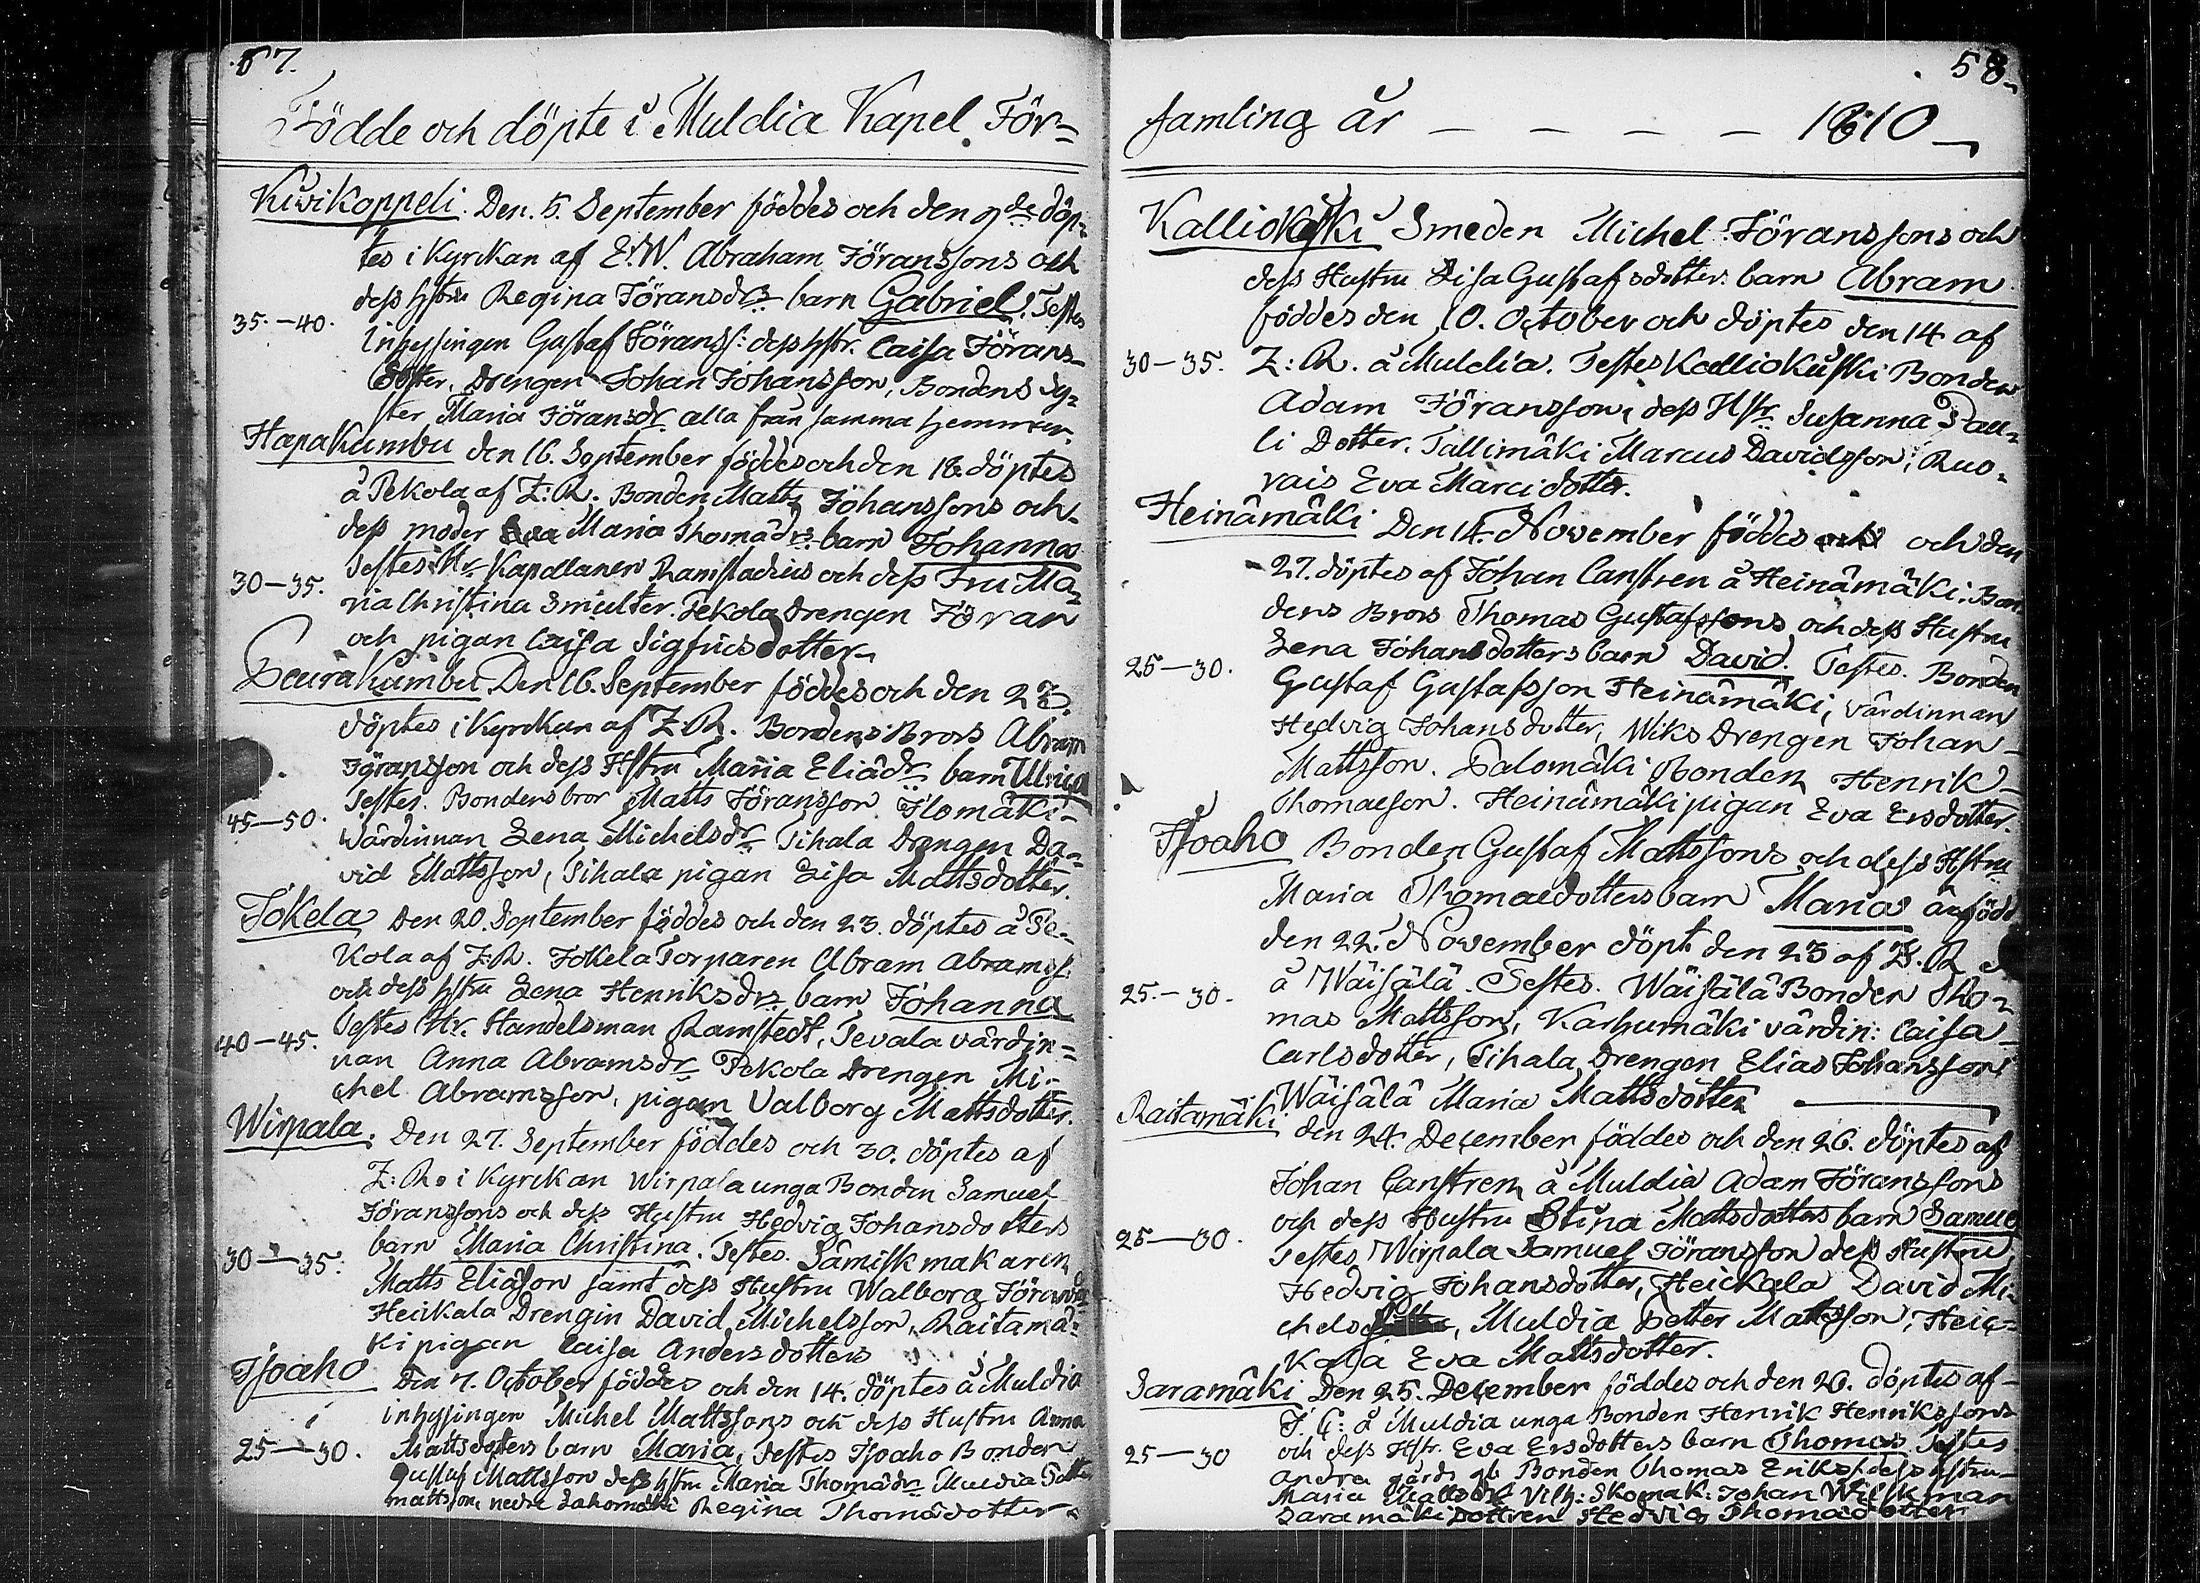 57.
Födde och döpte i Muldia Kapel För=
Kivikoppeli. Den. 5. September föddes och den 9de döp=
tes i Kyrckan af E:W. Abraham Jöranssons och
dess hstru Regina Jöransdrs barn Gabriel. Testes
35.-40. Inhysingen Gustaf Jöranss: dess hstr. Caisa Jörans=
dotter, Drengen Johan Johansson, Bondens sy=
ster Maria Jöransdr alla från samma hemman.
Hapakumbu den 16. September föddes och den 18. döptes
å Pekola af Z:R. Bonden Matts Johanssons och
dess moder Maria Thomædrs barn Johannes
Testes Hr Kapellanen Ramstadius och dess Fru Ma=
30-35. ria Christina Smulter. Pekola Drengen Jöran
och pigan Caisa Sigfrids dotter
Peura Kumbu Den 16. September föddes och den 23.
döptes i Kyrckan af Z.R. Bondens Brors Abram
Jöransson och dess Hstru Maria Eliædr barn Ulrica
Testes. Bondens bror Matts Jöransson Ilomäki
45-50. Wärdinnan Lena Michelsdr Tihala Drengen Da=
vid Mattsson, Tihala pigan Lisa Mattsdotter.
Jokela Den 20. September föddes och den 23. döptes å Pe=
kola af Z.R. Jokela Torparen Abram Abramss.
och dess hstru Lena Henriksdrs barn Johanna
Testes Hr. Handelsman Ramstedt, Tevala värdin=
40-45. nan Anna Abramsdr Pekola Drengen Mi=
chel Abramsson, pigan Valborg Mattsdotter.
Wirpala. Den 27. September föddes och 30. döptes af
Z:R. i Kyrckan Wirpala unga Bonden Samuel
Jöranssons och dess Hustru Hedvig Johansdotters
barn Maria Christina. Testes. Sämiskmakaren
30-35. Matts Eliasson samt dess Hustru Walborg Jöransdr
Heickala Drengin David Michelsson, Raitamä=
ki pigan Caisa Andersdotters
Isoaho Den 7. October föddes och den 14. döptes å Muldia
inhysingen Michel Mattssons och dess Hustru Anna
25-30. Mattsdotters barn Maria, Testes Isoaho Bonden
Gustaf Mattsson dess hstru Maria Thomædr Muldia Petter
mattsson, nedre Regina Thomædotter
58.
samling år _ _ _ _ _ 1810_
Kalliokoski Smeden Michel Jöranssons och
dess Hustru Lisa Gustafsdotters barn Abram
föddes den 10. October och döptes den 14 af
30-35. Z:R. å Muldia. Testes Kalliokuski Bonden
Adam Jöransson, dess Hstr. Susanna Paul=
li Dotter. Tallimäki Marcus Davidsson, Ruo=
vais Eva Marcidotter.
Heinämäki Den 14. November föddes och den
27. döptes af Johan Canstren å Heinämäki: Bon
dens Brors Thomas Gustafssons och dess Hustru
Lena Johansdotters barn David. Testes. Bonden
25-30. Gustaf Gustafsson Heinämäki, värdinnan
Hedvig Johansdotter, Wiks Drengen Johan
Mattsson. Palomäki Bonden Henrik
Thomasson. Heinämäki pigan Eva Ersdotter.
Isoaho Bonden Gustaf Mattssons och dess Hstru
Maria Thomædotters barn Maria är född
den 22. November döpt den 23 af Z.R
å Wäisälä. Testes. Wäisälä Bonden Tho=
25.-30. mas Mattsson, Karhumäki värdin: Caisa
Carlsdotter, Tihala Drengen Elias Johansson
Wäisälä Maria Mattsdotter
Raitamäki den 24. December föddes och den 26. döptes af
Johan Canstren å Muldia Adam Jöranssons
och dess Hustru Stina Mattsdotters barn Samuel
25-30. Testes Wirpala Samuel Jöransson dess Hustru
Hedvig Johansdotter, Heickala David Mi=
chels, Muldia Petter Mattsson, Heic=
kala Eva Mattsdotter.
Saramäki Den 25. December föddes och den 26. döptes af
J. C: å Muldia unga Bonden Henrik Henrikssons
25-30 och dess Hstr. Eva Ersdotters barn Thomas Testes
andra gårds gb Bonden Thomas Erikss dess hstru
Maria Mattsdr Vilh: Skomak: Johan Wilckman
Saramäki dottren Hedvig Thomædotter